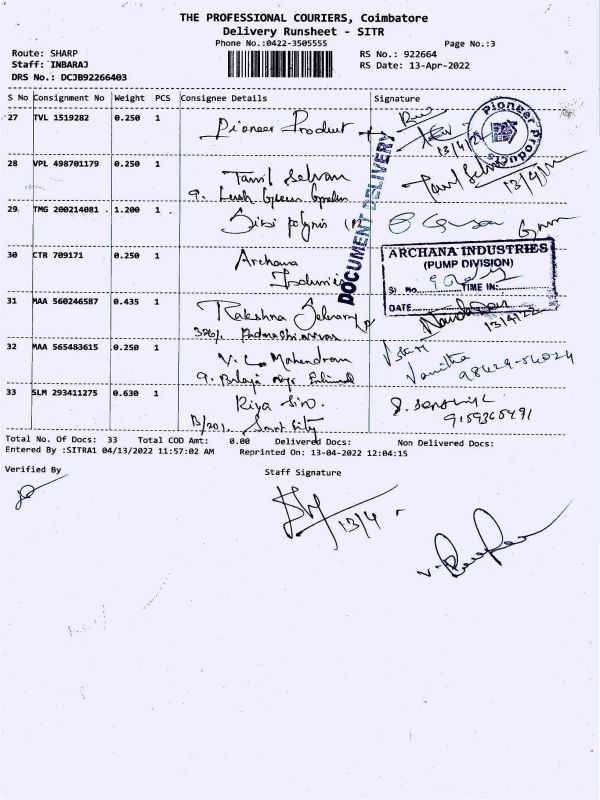 THE PROFESSIONAL COURIERS, Coimbatore
Delivery Runsheet - SITR
Phone No.:0422-3505555
Page No.:3
Route: SHARP
RS No.: 922664
Staff: INBARAJ
RS Date: 13-Apr-2022
DRS No.: DCJB92266403
S No Consignment No Weight PCS Consignee Details Signature
27 TVL 1519282 0.250 1 Pioneer Product
13/4/22
Pioneer Products
28 VPL 498701179 0.250 1 Tamil Selvan
9.
Tamil Selvan
13/4/22
29 TMG 200214081 1.200 1
DOCUMENT DELIVERY
30 CTR 709171 0.250 1 Archana
Industries
ARCHANA INDUSTRIES
(PUMP DIVISION)
Sl. No. TIME IN:
DATE
31 MAA 560246587 0.435 1 Rakshna Selvaraj
13/4/22
32 MAA 565483615 0.250 1 V. L. Mahendran
9. Balaji
Vanitha
98424-54024
33 SLM 293411275 0.630 1 Riya
B/201. Smart City
9159365491
Total No. Of Docs: 33 Total COD Amt: 0.00 Delivered Docs: Non Delivered Docs:
Entered By :SITRA1 04/13/2022 11:57:02 AM Reprinted On: 13-04-2022 12:04:15
Verified By
Staff Signature
13/4